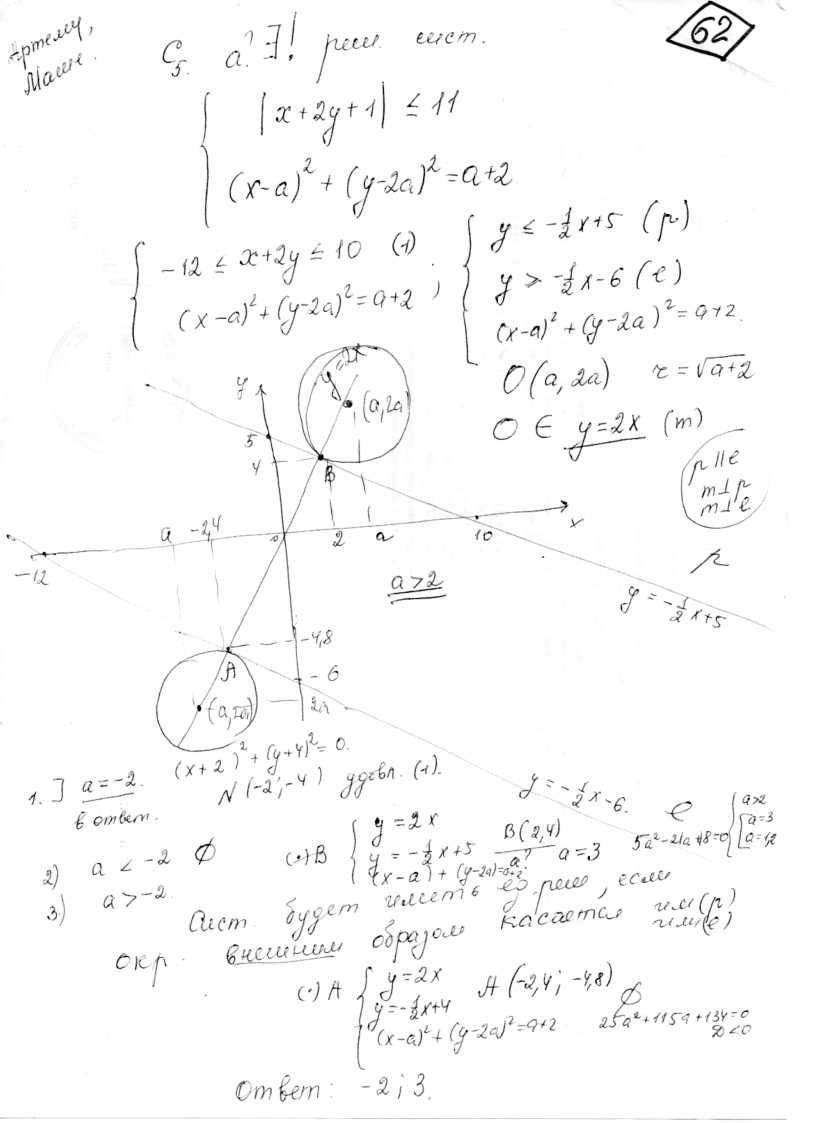 Артему,
Маше.
62
C5. a? ∃! реш. сист.
{ |x+2y+1| ≤ 11
(x-a)² + (y-2a)² = a+2
{ -12 ≤ x+2y ≤ 10 (1)
(x-a)² + (y-2a)² = a+2 ;
{ y ≤ -½x+5 (p)
y ≥ -½x-6 (l)
(x-a)² + (y-2a)² = a+2.
O(a, 2a) r = √a+2
O ∈ y=2x (m)
p ∥ l
m ⊥ p
m ⊥ l
y
y=2x
(a, 2a)
5
4
B
a
-2,4
0
2
a
10
x
-12
a>2
p
y = -½x+5
-4,8
A
-6
(a, 2a)
2a
y = -½x-6. l
1. ] a = -2. (x+2)² + (y+4)² = 0.
в ответ. N(-2; -4) удовл. (1).
2) a < -2 ∅
3.) a > -2.
(·)B { y = 2x B(2, 4)
y = -½x+5 a? a = 3
(x-a)² + (y-2a)² = a+2
5a²-21a+18=0
{ a>2
[ a=3
a=1,2
Сист. будет иметь ед. реш., если
окр. внешним образом касается или (p)
или (l)
(·)A { y = 2x A(-2,4; -4,8)
y = -½x+4 ∅
(x-a)² + (y-2a)² = a+2 25a²+115a+134=0
D<0
Ответ: -2; 3.